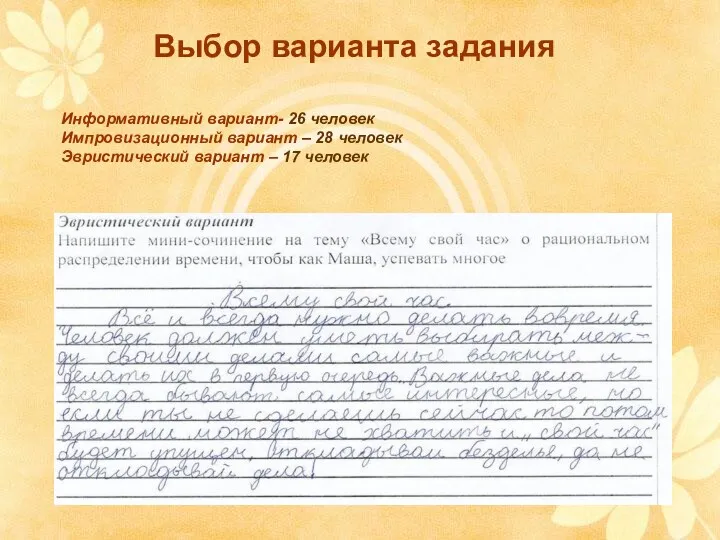 Выбор варианта задания
Информативный вариант- 26 человек
Импровизационный вариант – 28 человек
Эвристический вариант – 17 человек
Эвристический вариант
Напишите мини-сочинение на тему «Всему свой час» о рациональном
распределении времени, чтобы как Маша, успевать многое
Всему свой час.
Всё и всегда нужно делать вовремя.
Человек должен уметь выбирать меж-
ду своими делами самые важные и
делать их в первую очередь. Важные дела не
всегда бывают самые интересные, но
если ты не сделаешь сейчас то потом
времени может не хватить и „свой час"
будет упущен. откладывай безделье, да не
откладывай дела!